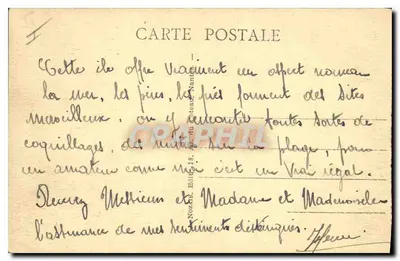 I
CARTE POSTALE
Cette ile offre vraiment un aspect nouveau
la mer, les pins, les prés forment des sites
merveilleux. on y rencontre toutes sortes de
coquillages, de sur la plage, pour
un amateur comme moi c'est un vrai régal.
Recevez Messieurs et Madame et Mademoiselle
l'assurance de mes sentiments distingués.
Nozais, Edit., Nantes
CPARAMA